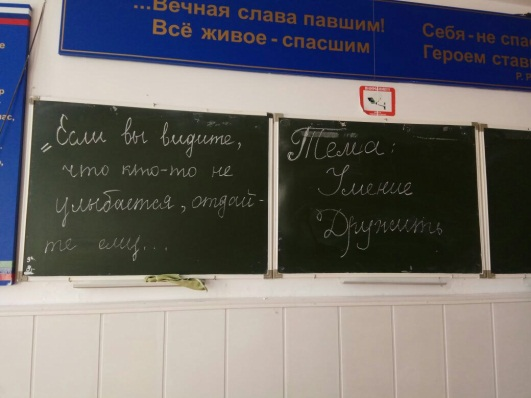 ...Вечная слава павшим!
Всё живое - спасшим
Себя - не спас
Героем став
„Если вы видите,
что кто-то не
улыбается, отдай-
те ему...
Тема:
Умение
Дружить